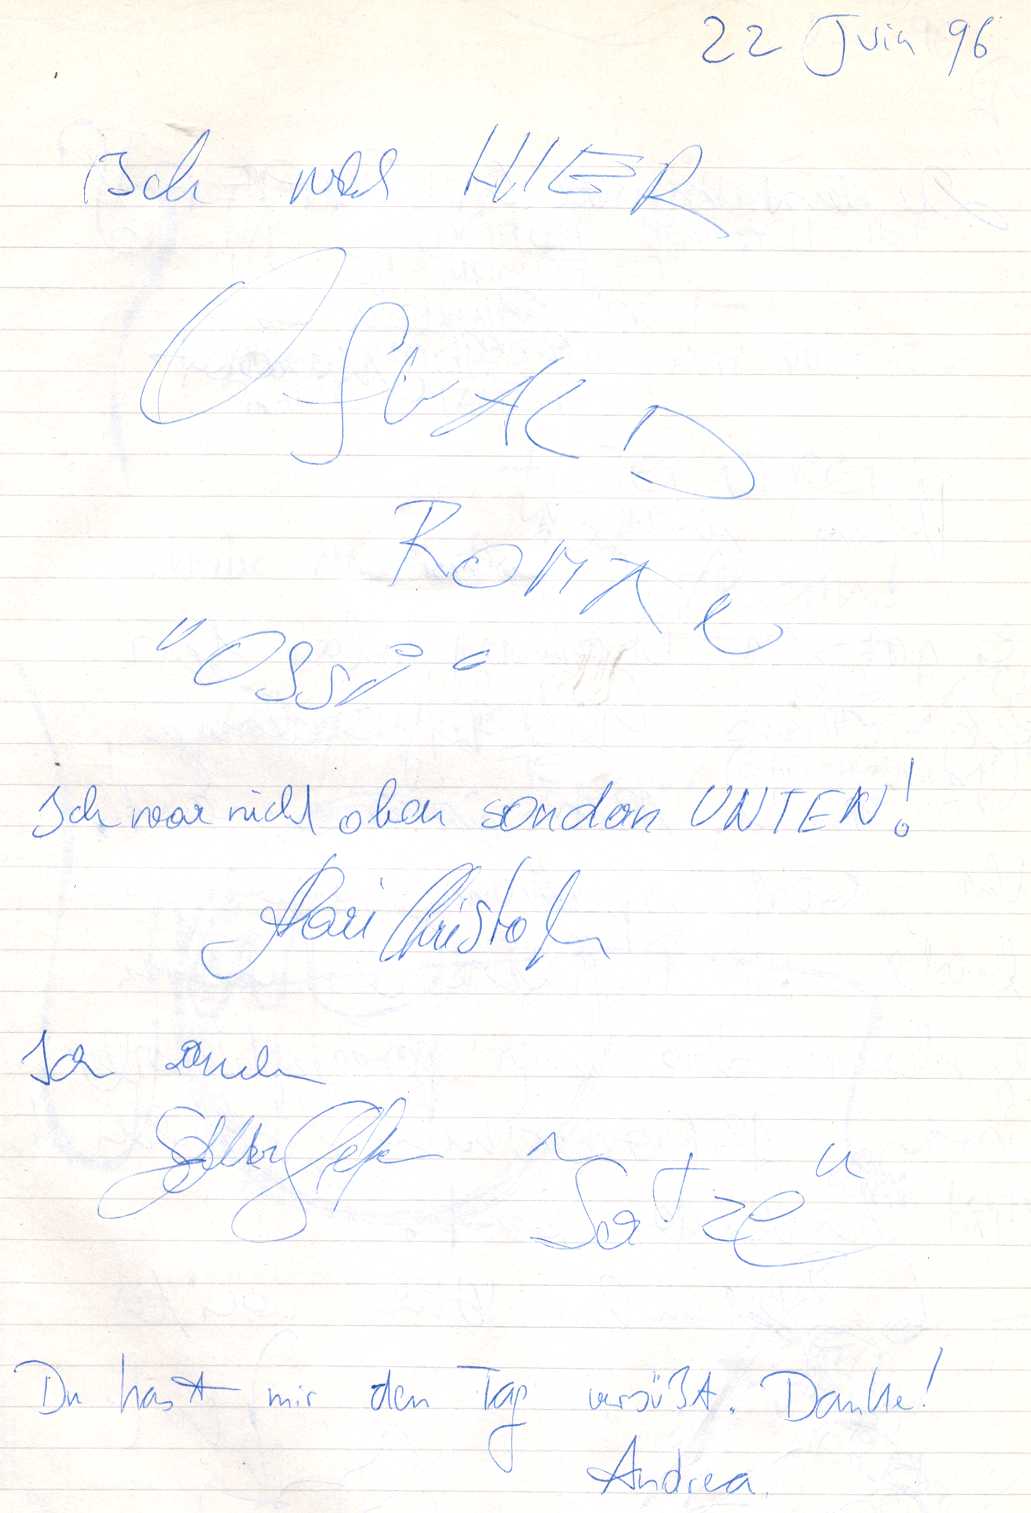 22 Juin 96
Isch war HIER
OSWALD
ROMA
"Ossi"
Ich war nicht oben sondern UNTEN!
Christof
Ich auch
"Tatze"
Du hast mir den Tag versüßt. Danke!
Andrea.